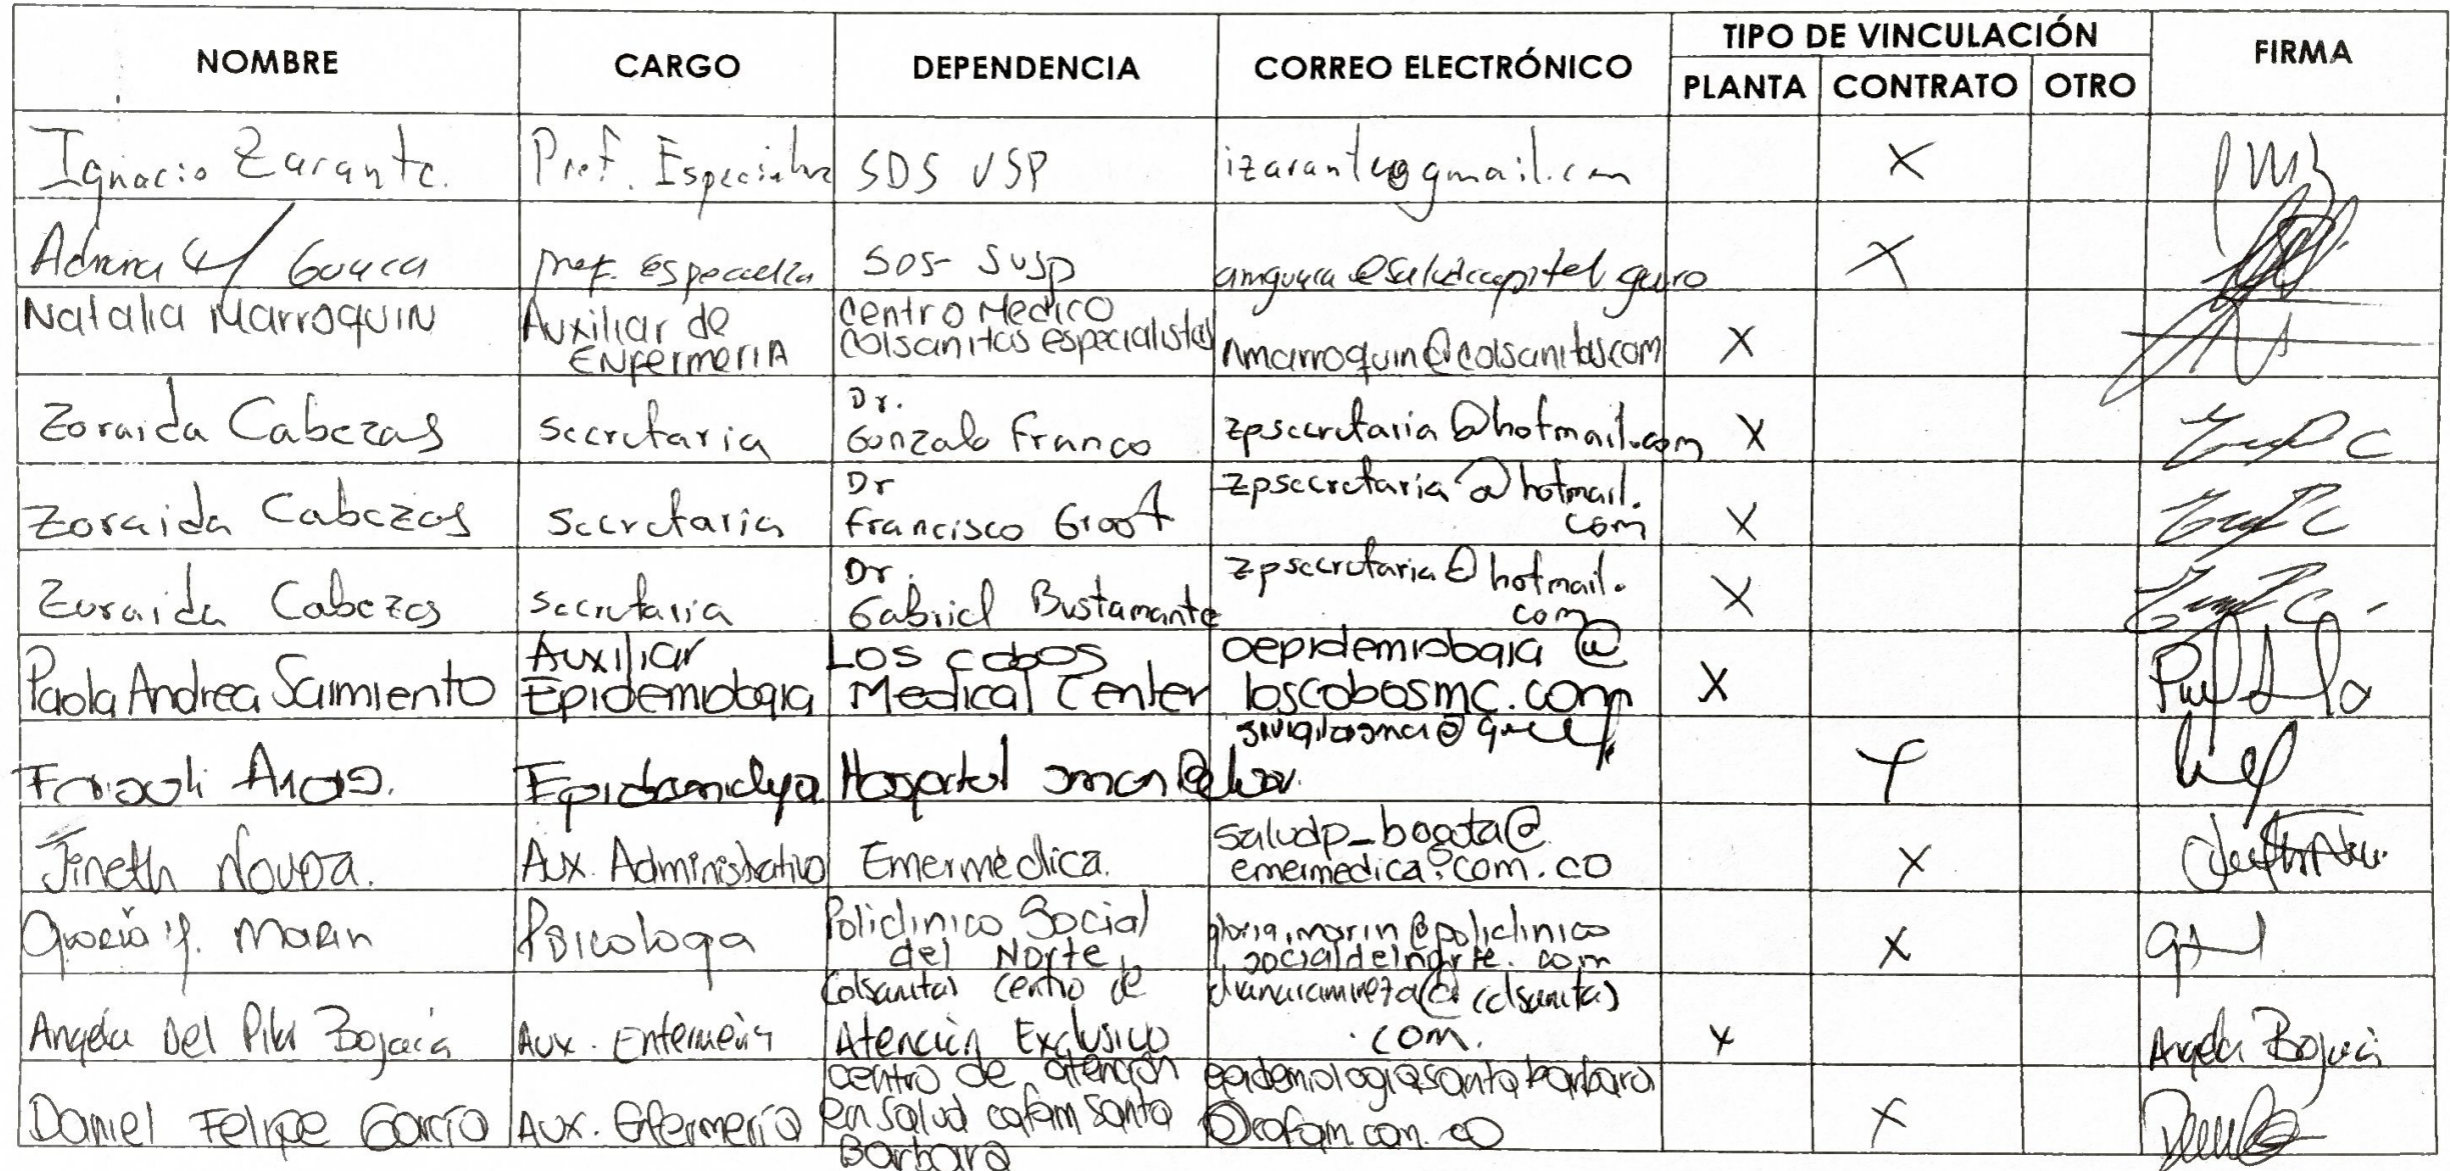 NOMBRE CARGO DEPENDENCIA CORREO ELECTRÓNICO TIPO DE VINCULACIÓN FIRMA
PLANTA CONTRATO OTRO
Ignacio Zarante. Prof. SDS VSP X
Gouca prof. SDS- SVSP X
Natalia Marroquin Auxiliar de Enfermeria Centro Medico Colsanitas especialistas nmarroquin@colsanitas.com X
Zoraida Cabezas secretaria Dr. Gonzalo Franco zpsecretaria@hotmail.com X
Zoraida Cabezas secretaria Dr Francisco Groot zpsecretaria@hotmail.com X
Zoraida Cabezas secretaria Dr. Gabriel Bustamante zpsecretaria@hotmail.com X
Paola Andrea Sarmiento Auxiliar Epidemiologia Los cobos Medical Center oepidemiologia@loscobosmc.com X
Hospital
Jineth Novoa. Aux. Administrativo Emermédica. saludp_bogota@emermedica.com.co X
Marin Psicologa Policlinico Social del Norte gloria.marin@policlinicosocialdelnorte.com X
Angela Del Pilar Bojacá Aux. Enfermería Colsanitas Centro de Atención Exclusivo dianaramireza@colsanitas.com. X Angela Bojacá
Daniel Felipe García Aux. Enfermería centro de atención en salud cafam Santa Barbara epidemiologiasantabarbara@cafam.com.co X